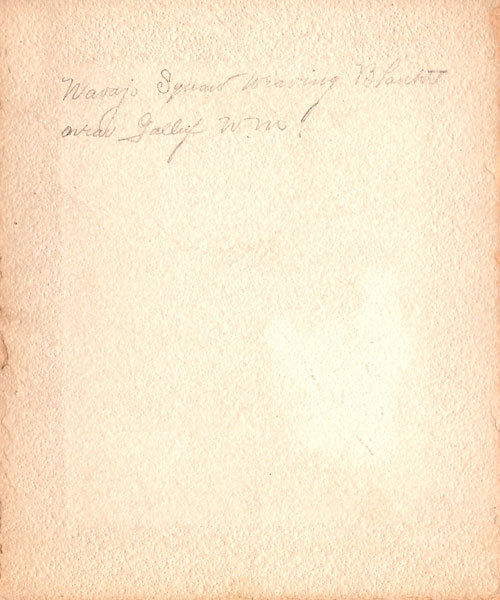 Navajo Squaw weaving Blanket
near Gallup N.M.